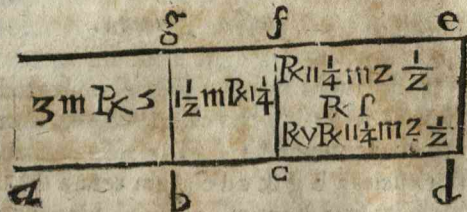 g f e
3 m ℞ 5
1 1/2 m ℞ 1 1/4
℞ 11 1/4 m 2 1/2
℞ ſ
℞ v ℞ 11 1/4 m 2 1/2
a b c d